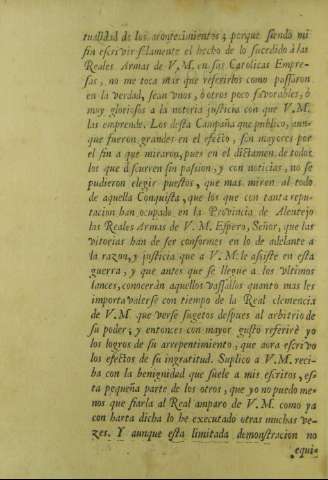 tualidad de los acontecimientos; porque siendo mi
fin escrivir solamente el hecho de lo sucedido à las
Reales Armas de V.M. en sus Catolicas Empre-
sas, no me toca mas que referirlos como passaron
en la verdad, sean vnos, ò otros poco favorables, ò
muy gloriosos a la notoria justicia con que V.M.
las emprende. Los desta Campaña que publico, aun-
que fueron grandes en el efecto, son mayores por
el fin a que miraron, pues en el dictamen de todos
los que discurren sin passion, y con noticias, no se
pudieron elegir puestos, que mas miren al todo
de aquella Conquista, que los que con tanta repu-
tacion han ocupado en la Provincia de Alentejo
las Reales Armas de V.M. Espero, Señor, que las
vitorias han de ser conformes en lo de adelante a
la razon, y justicia que a V.M. le assiste en esta
guerra, y que antes que se llegue a los vltimos
lances, conoceràn aquellos vassallos quanto mas les
importa valerse con tiempo de la Real clemencia
de V.M. que verse sugetos despues al arbitrio de
su poder; y entonces con mayor gusto referirè yo
los logros de su arrepentimiento, que aora escrivo
los efectos de su ingratitud. Suplico a V.M. reci-
ba con la benignidad que suele a mis escritos, es-
ta pequeña parte de los otros, que yo no puedo me-
nos que fiarla al Real amparo de V.M. como ya
con harta dicha lo he executado otras muchas ve-
zes. Y aunque esta limitada demonstracion no
equi-